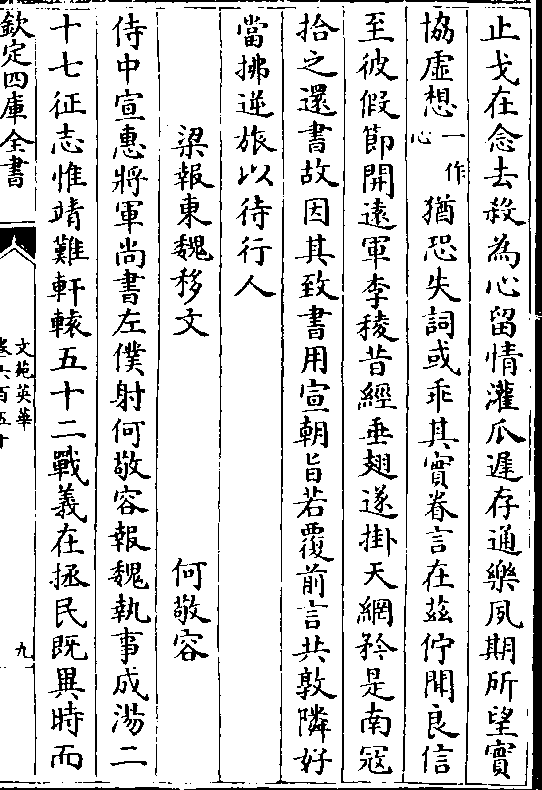 止戈在念去殺為心留情灌瓜遲存通樂夙期所望實
協虛想一作心猶恐失詞或乖其實眷言在兹佇聞良信
至彼假節開遠軍李稜昔經垂翅遂掛天網矜是南冠
拾之還書故因其致書用宣朝旨若覆前言共敦隣好
當拂逆旅以待行人
梁報東魏移文 何敬容
侍中宣惠將軍尚書左僕射何敬容報魏執事成湯二
十七征志惟靖難軒轅五十二戰義在拯民既異時而
欽定四庫全書
文苑英華
卷六百五十
九